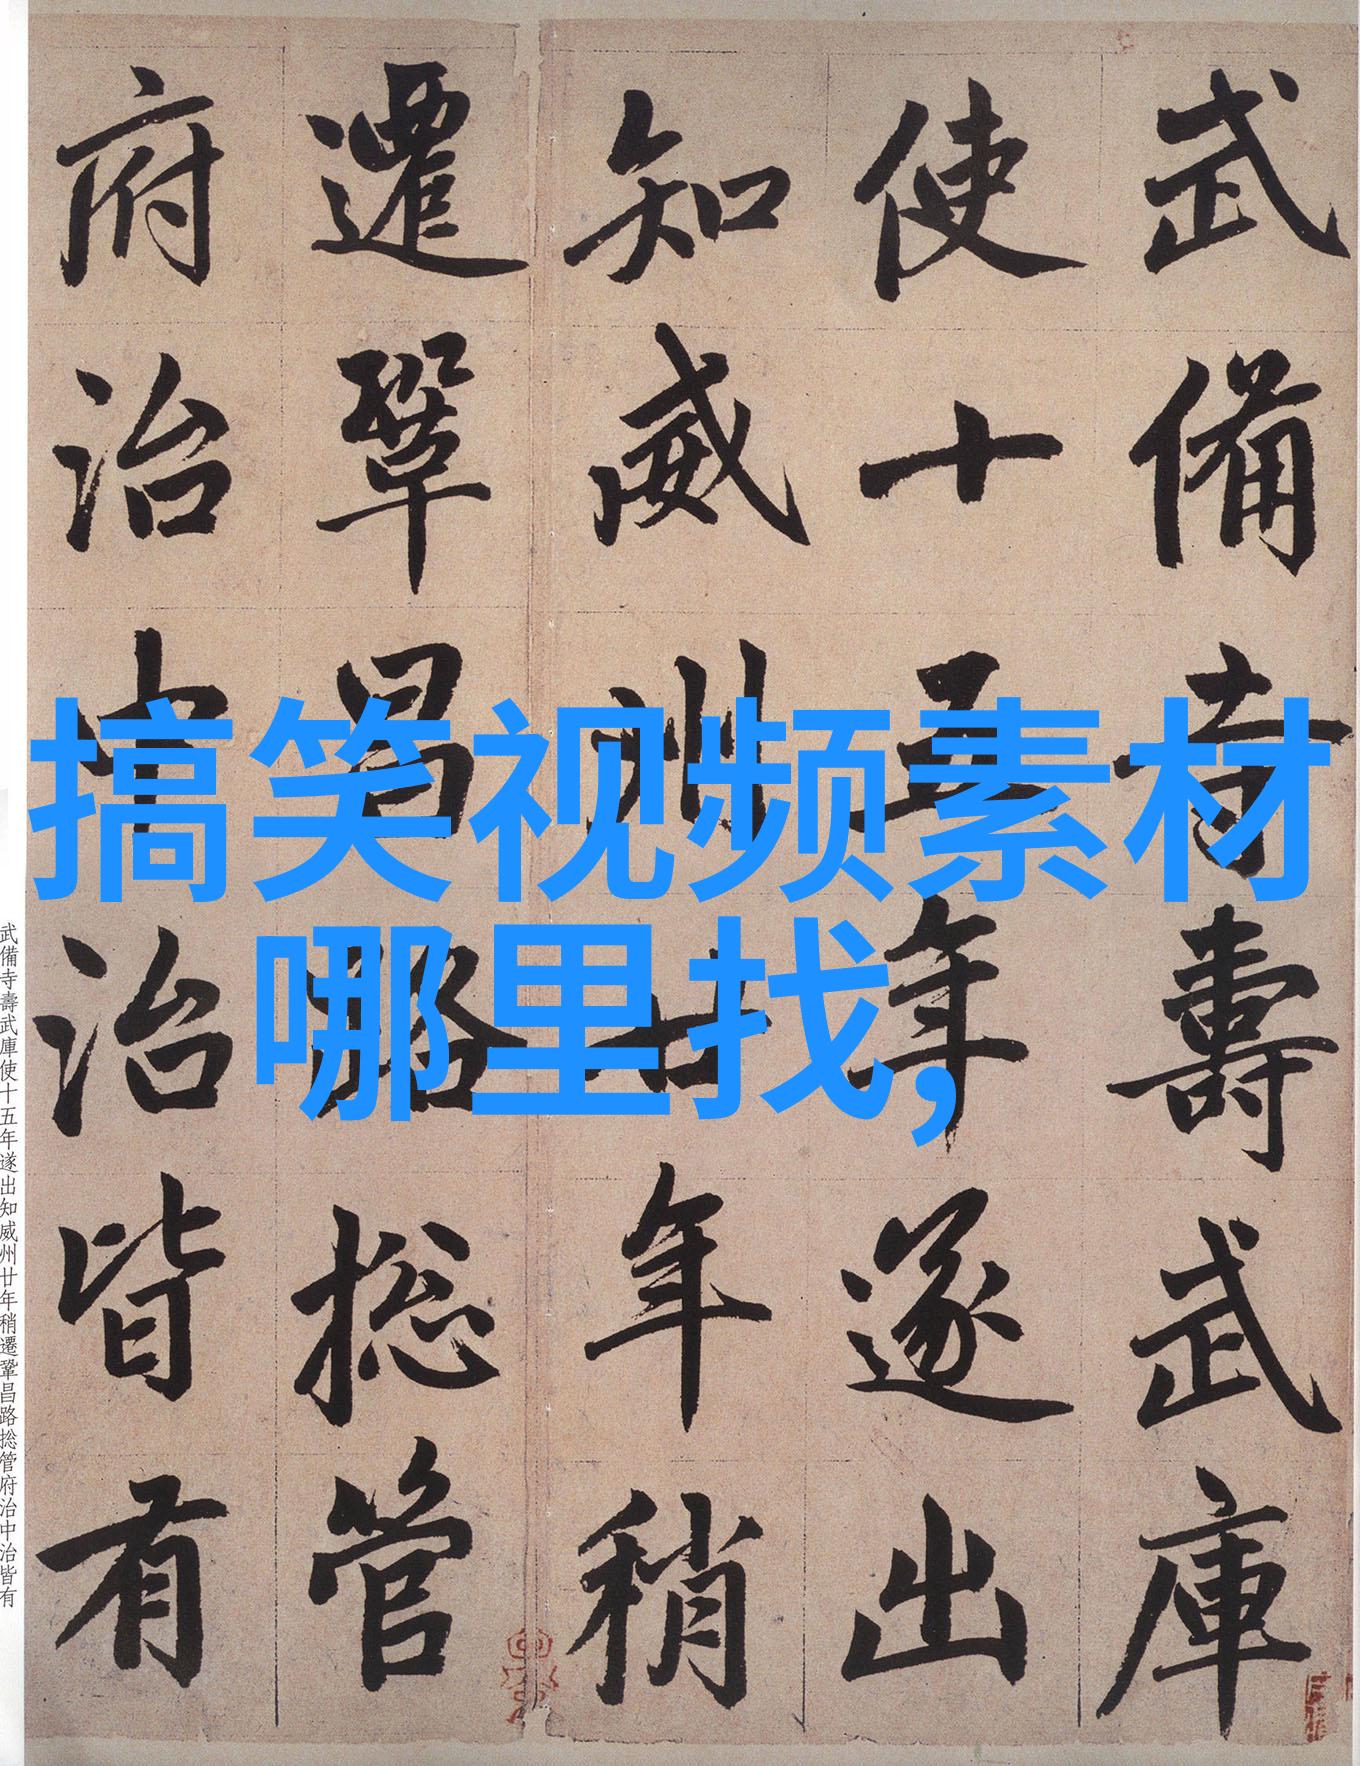 武備寺壽武庫
使十五年遂出
知威州廿年稍
遷鞏昌路捴管
府治中治皆有
搞笑视频素材
哪里找,
武備寺壽武庫使十五年遂出知威州廿年稍遷鞏昌路捴管府治中治皆有